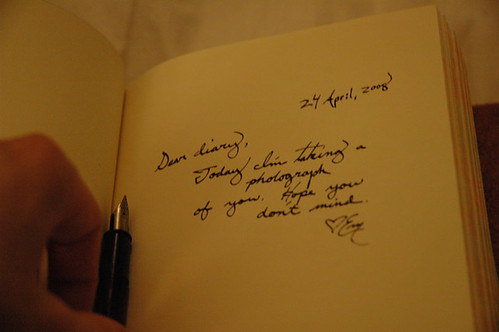 24 April, 2008
Dear diary,
Today I'm taking a
photograph
of you. Hope you
don't mind.